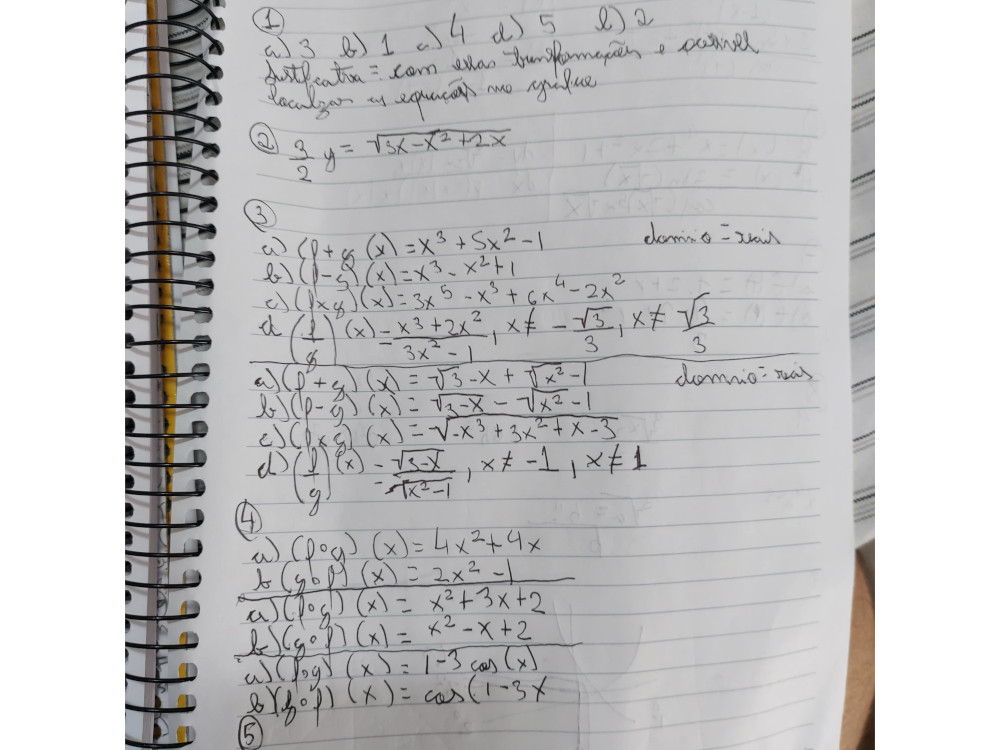 ①
a) 3 b) 1 c) 4 d) 5 e) 2
Justificativa = com essas transformações e possivel
localizar as equações no grafico
② 3/2 y = √3x-x²+2x
③
a) (f+g (x) = x³ + 5x² - 1 domnio = reais
b) (f-g) (x) = x³ - x² + 1
c) (fxg) (x) = 3x⁵ - x³ + 6x⁴ - 2x²
d (f/g) (x) = x³+2x²/3x²-1, x ≠ -√3/3, x ≠ √3/3
a) (f+g) (x) = √3-x + √x²-1 domnio = reais
b) (f-g) (x) = √3-x - √x²-1
c) (fxg) (x) = √-x³+3x²+x-3
d) (f/g) (x) = √3-x/√x²-1, x ≠ -1, x ≠ 1
④
a) (fog) (x) = 4x²+4x
b (gof) (x) = 2x²-1
a) (fog) (x) = x²+3x+2
b) (gof) (x) = x²-x+2
a) (fog) (x) = 1-3 cos (x)
b) (gof) (x) = cos (1-3x
⑤